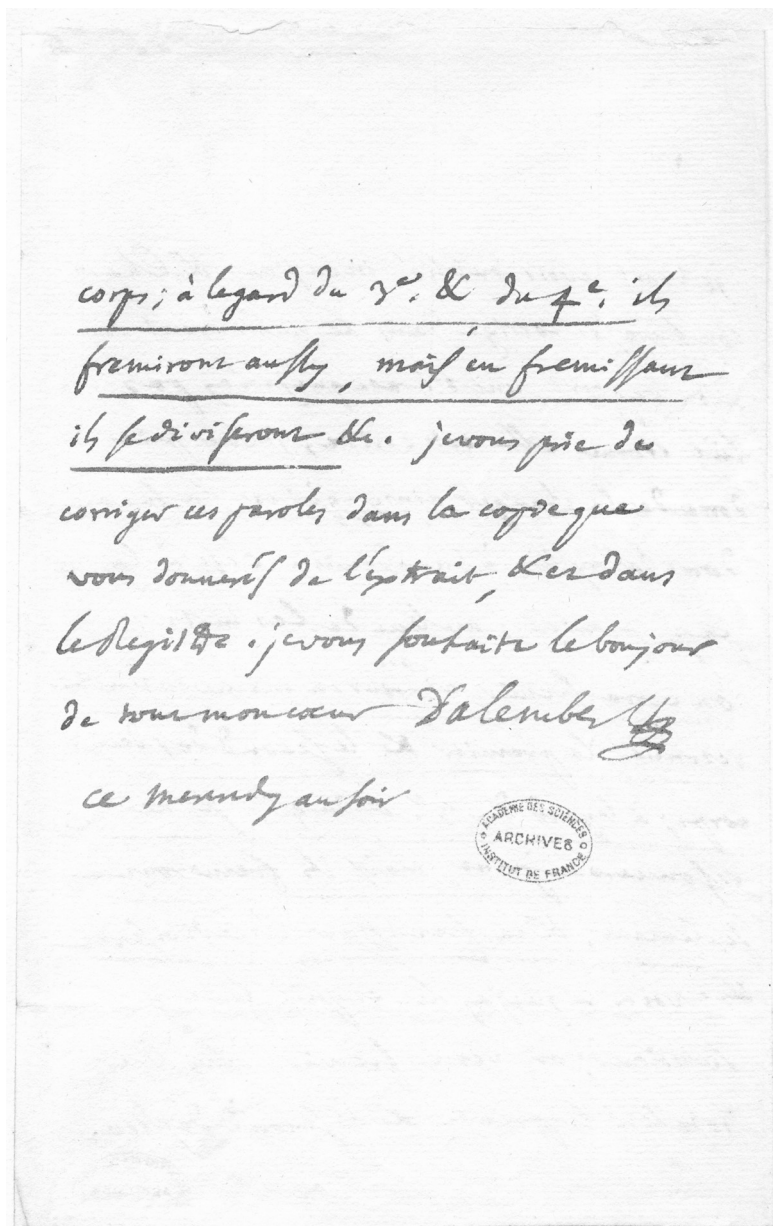 corps; à legard du 3e. & du 4e. ils
fremiront aussy, mais en fremissant
ils se diviseront &c. je vous prie de
corriger ces paroles dans la copie que
vous donnerés de l'extrait, & et dans
le Registre. je vous souhaite le bonjour
de tout mon coeur D'alembert
ce mercredy au soir
ACADEMIE DES SCIENCES
ARCHIVES
INSTITUT DE FRANCE